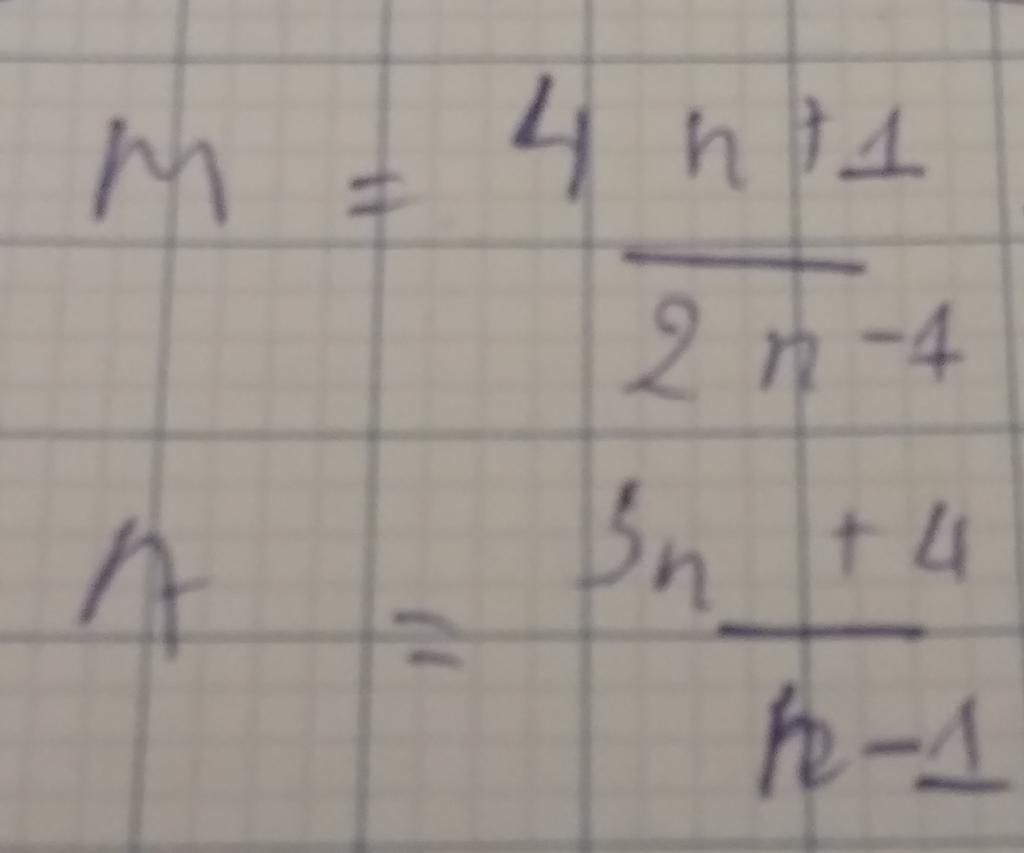 M = 4 n + 1
2 n - 1
A = 3n + 4
n - 1